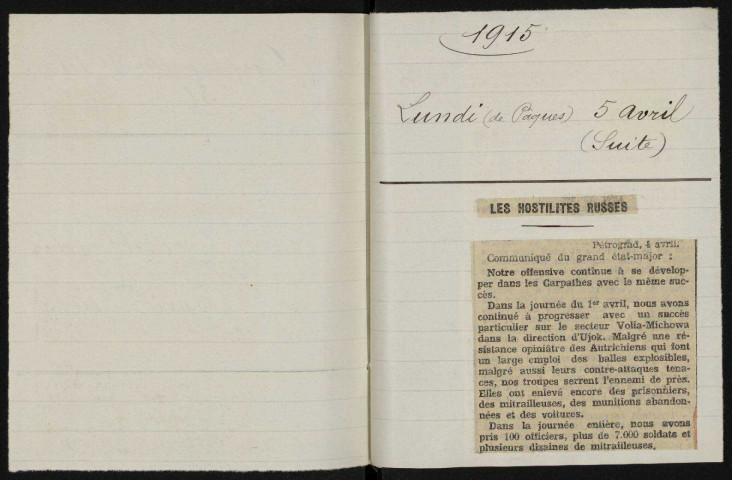 1915
Lundi (de Pâques) 5 avril
(Suite)
LES HOSTILITES RUSSES
Pétrograd, 4 avril.
Communiqué du grand état-major :
Notre offensive continue à se dévelop-
per dans les Carpathes avec le même suc-
cès.
Dans la journée du 1er avril, nous avons
continué à progresser avec un succès
particulier sur le secteur Volia-Michowa
dans la direction d'Ujok. Malgré une ré-
sistance opiniâtre des Autrichiens qui font
un large emploi des balles explosibles,
malgré aussi leurs contre-attaques tena-
ces, nos troupes serrent l'ennemi de près.
Elles ont enlevé encore des prisonniers,
des mitrailleuses, des munitions abandon-
nées et des voitures.
Dans la journée entière, nous avons
pris 100 officiers, plus de 7.000 soldats et
plusieurs dizaines de mitrailleuses.